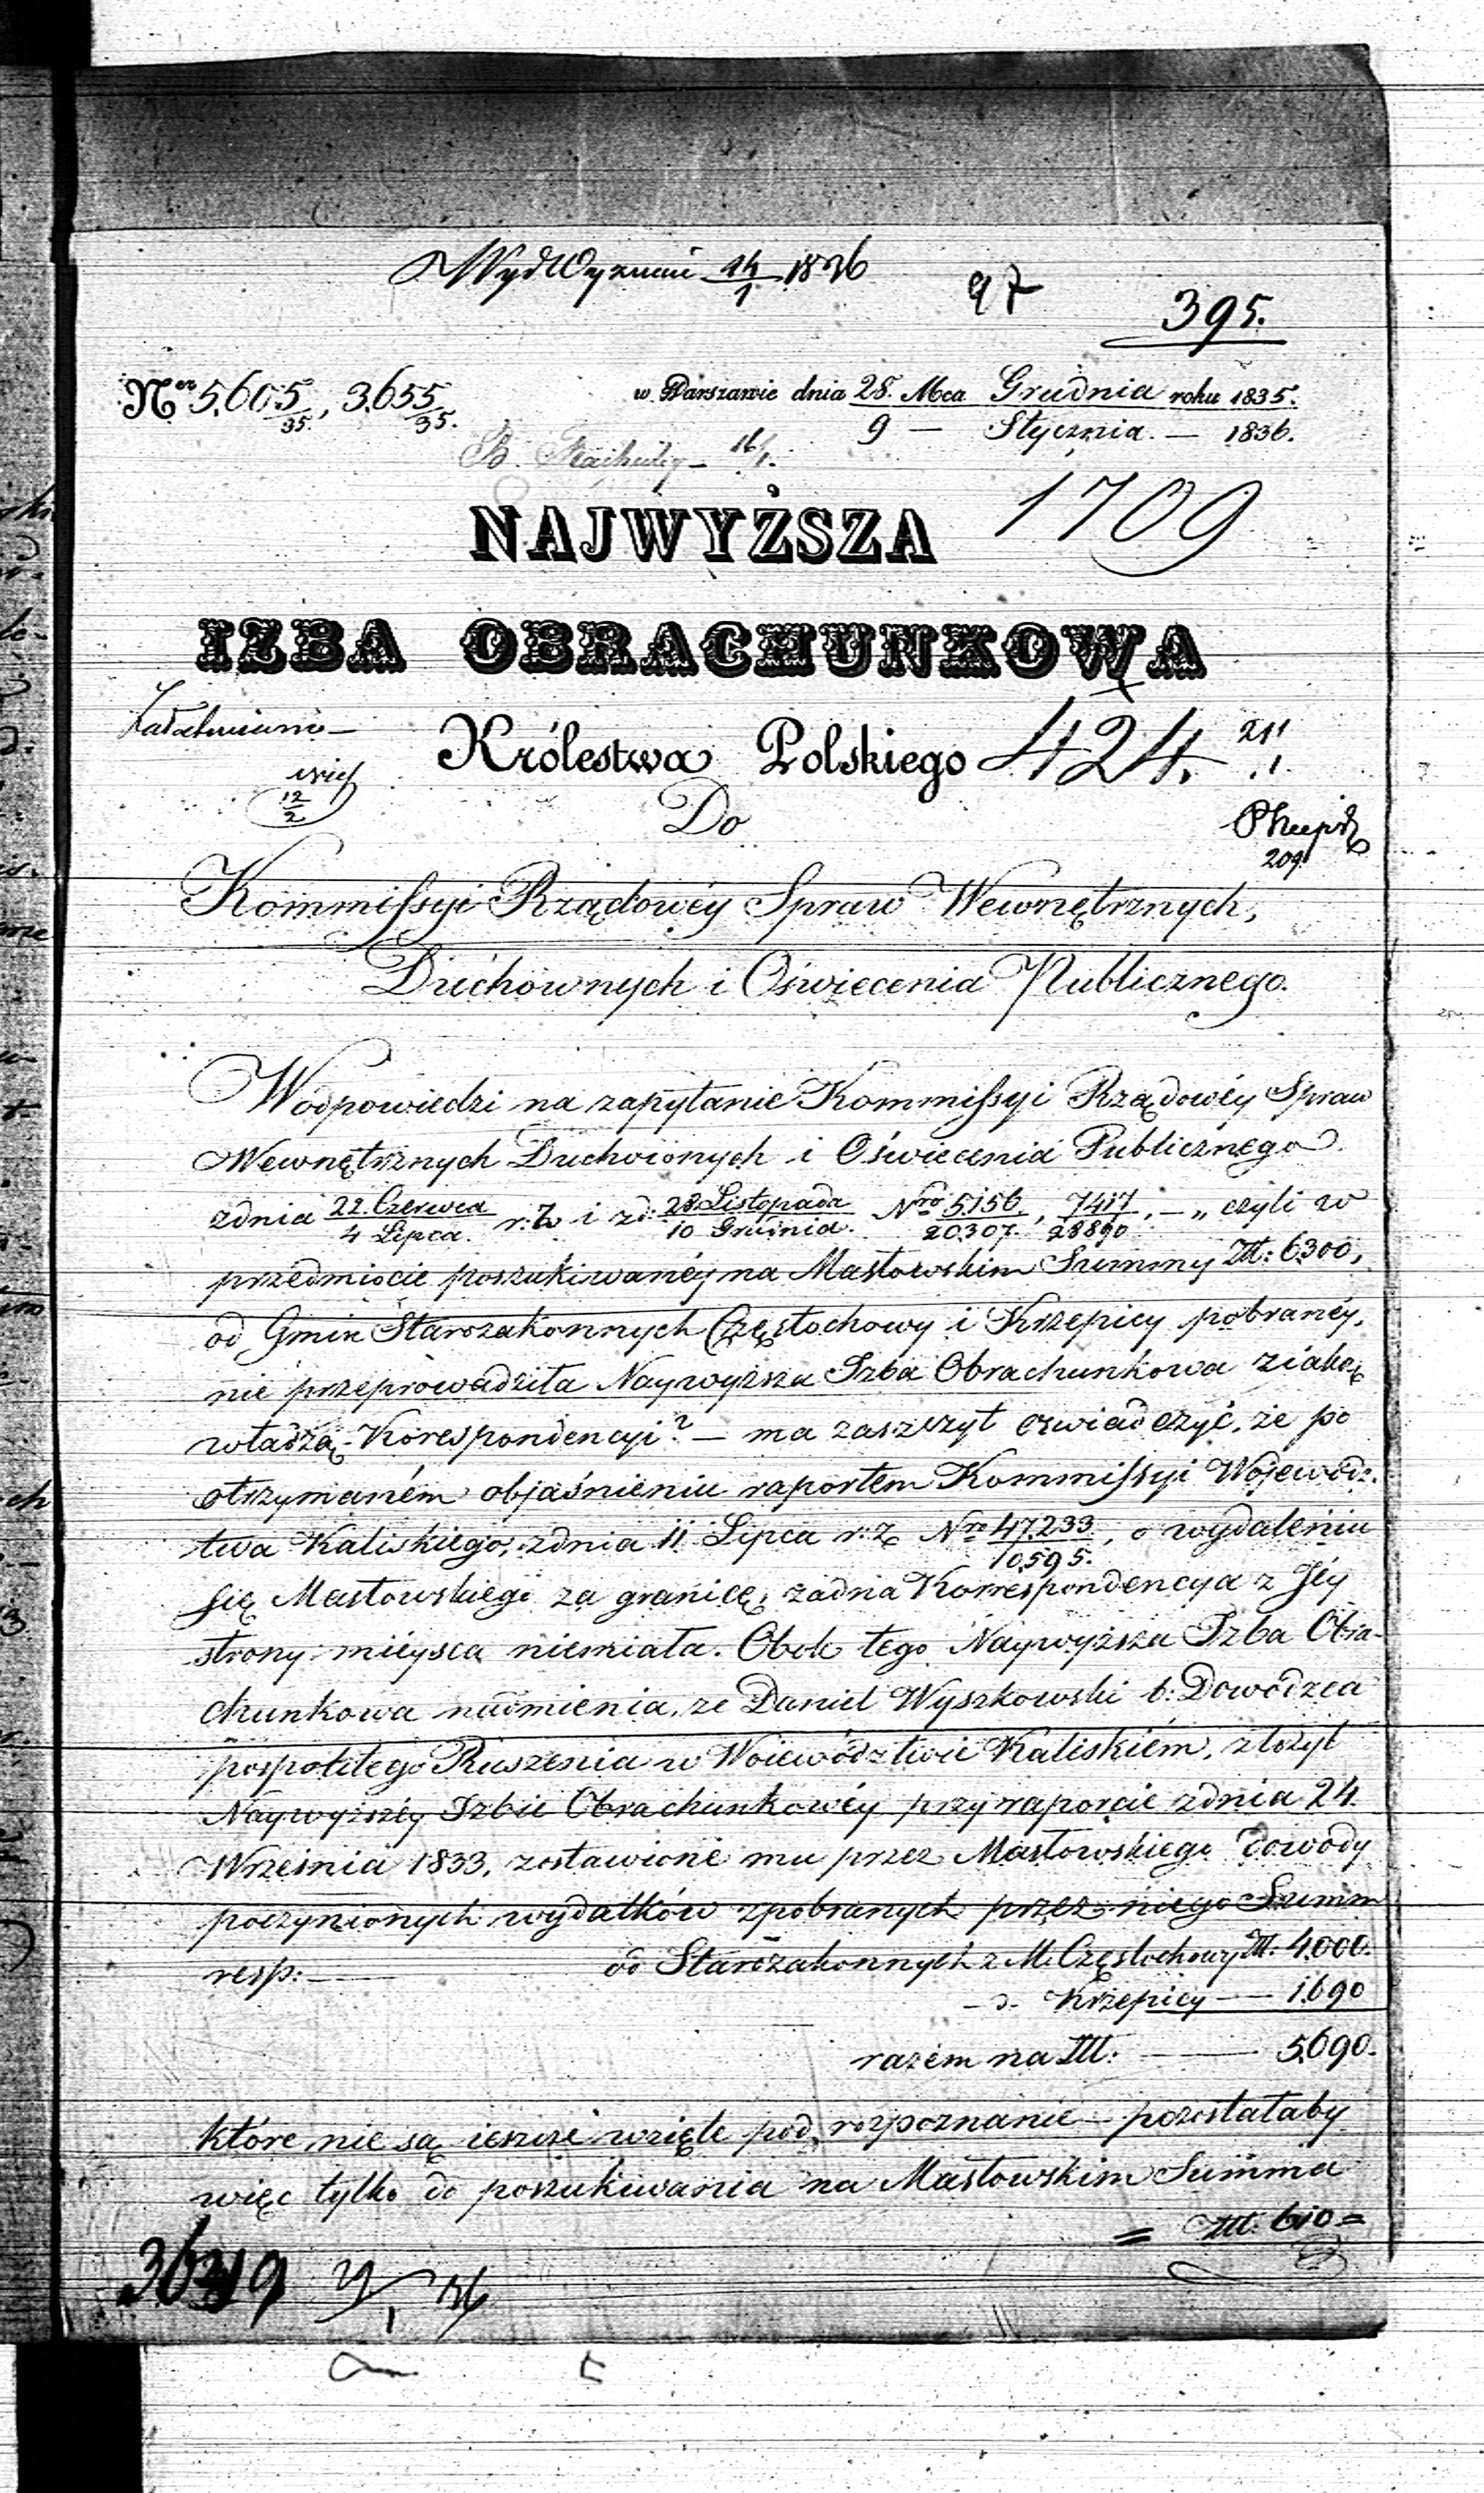 1836
97
395.
Nro 5.605/35, 3.655/35.
w Warszawie dnia 28. Mca Grudnia roku 1835.
9 — Stycznia. — 1836.
16/1.
1709
NAJWYŻSZA
IZBA OBRACHUNKOWA
Królestwa Polskiego
424.
21/1.
12/2
Do
209
Kommissyi Rządowéy Spraw Wewnętrznych,
Duchownych i Oświecenia Publicznego.
W odpowiedzi na zapytanie Kommissyi Rządowéy Spraw
Wewnętrznych Duchownych i Oświecenia Publicznego
zdnia 22. Czerwca/4 Lipca. r: z i zd: 28 Listopada/10 Grudnia. Nro 5.156/20.307., 7417/28890, — „ czyli w
przedmiocie poszukiwanéy na Masłowskim Summy Zł: 6.300,
od Gmin Starozakonnych Częstochowy i Krzepicy pobranéy,
nie przeprowadziła Naywyższa Izba Obrachunkowa z iaką
władzą Korespondencyi? — ma zaszczyt oświadczyć, że po
otrzymaném objaśnieniu raportem Kommissyi Wojewódz-
twa Kaliskiego, zdnia 11 Lipca r: z Nro 47.233/10.595., o wydaleniu
się Masłowskiego za granicę, żadna Korrespondencya z Jéy
strony miéysca niemiała. Obok tego Naywyższa Izba Obra-
chunkowa nadmienia, że Daniel Wyszkowski b: Dowódzca
pospolitego Ruszenia w Woiewództwie Kaliskiém, złożył
Naywyższéy Izbie Obrachunkowéy przy raporcie zdnia 24.
Września 1833, zostawione mu przez Masłowskiego dowody
poczynionych wydatków z pobranych przez niego Summ
resp: — od Starozakonnych z M. Częstochowy Zł: 4.000.
— d- Krzepicy — 1.690
razem na Zł: — 5.690.
które nie są ieszcze wzięte pod rozpoznanie — pozostałaby
więc tylko do poszukiwania na Masłowskim Summa
= Zł. 610 =